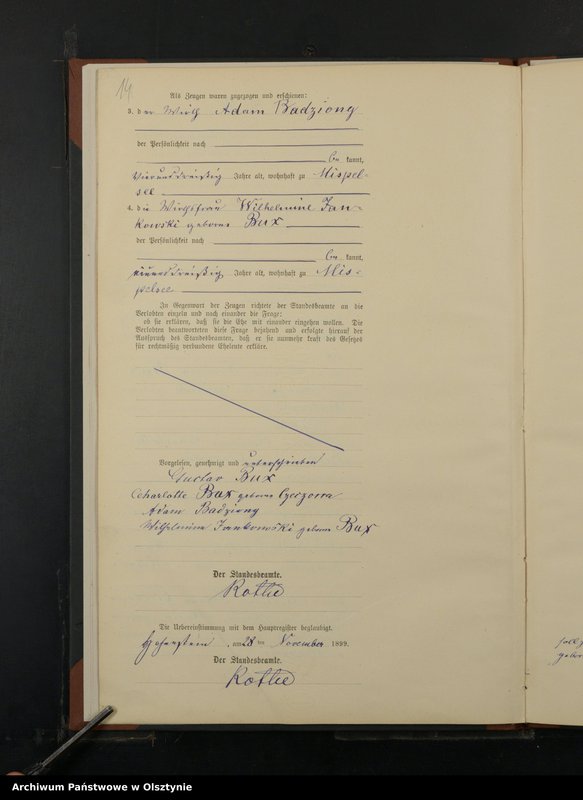 14
Als Zeugen waren zugezogen und erschienen:
3. der Wirth Adam Badziong
der Persönlichkeit nach
be kannt,
vierunddreißig Jahre alt, wohnhaft zu Mispel-
see
4. die Wirthsfrau Wilhelmine Jan-
kowski geborene Bux
der Persönlichkeit nach
be kannt,
einunddreißig Jahre alt, wohnhaft zu Mis-
pelsee
In Gegenwart der Zeugen richtete der Standesbeamte an die
Verlobten einzeln und nach einander die Frage:
ob sie erklären, daß sie die Ehe mit einander eingehen wollen. Die
Verlobten beantworteten diese Frage bejahend und erfolgte hierauf der
Ausspruch des Standesbeamten, daß er sie nunmehr kraft des Gesetzes
für rechtmäßig verbundene Eheleute erkläre.
Vorgelesen, genehmigt und unterschrieben
Gustav Bux
Charlotte Bux geborene
Adam Badziong
Wilhelmine Jankowski geborene Bux
Der Standesbeamte.
Rothe
Die Uebereinstimmung mit dem Hauptregister beglaubigt.
Hohenstein, am 28 ten November 1899.
Der Standesbeamte.
Rothe
Archiwum Państwowe w Olsztynie